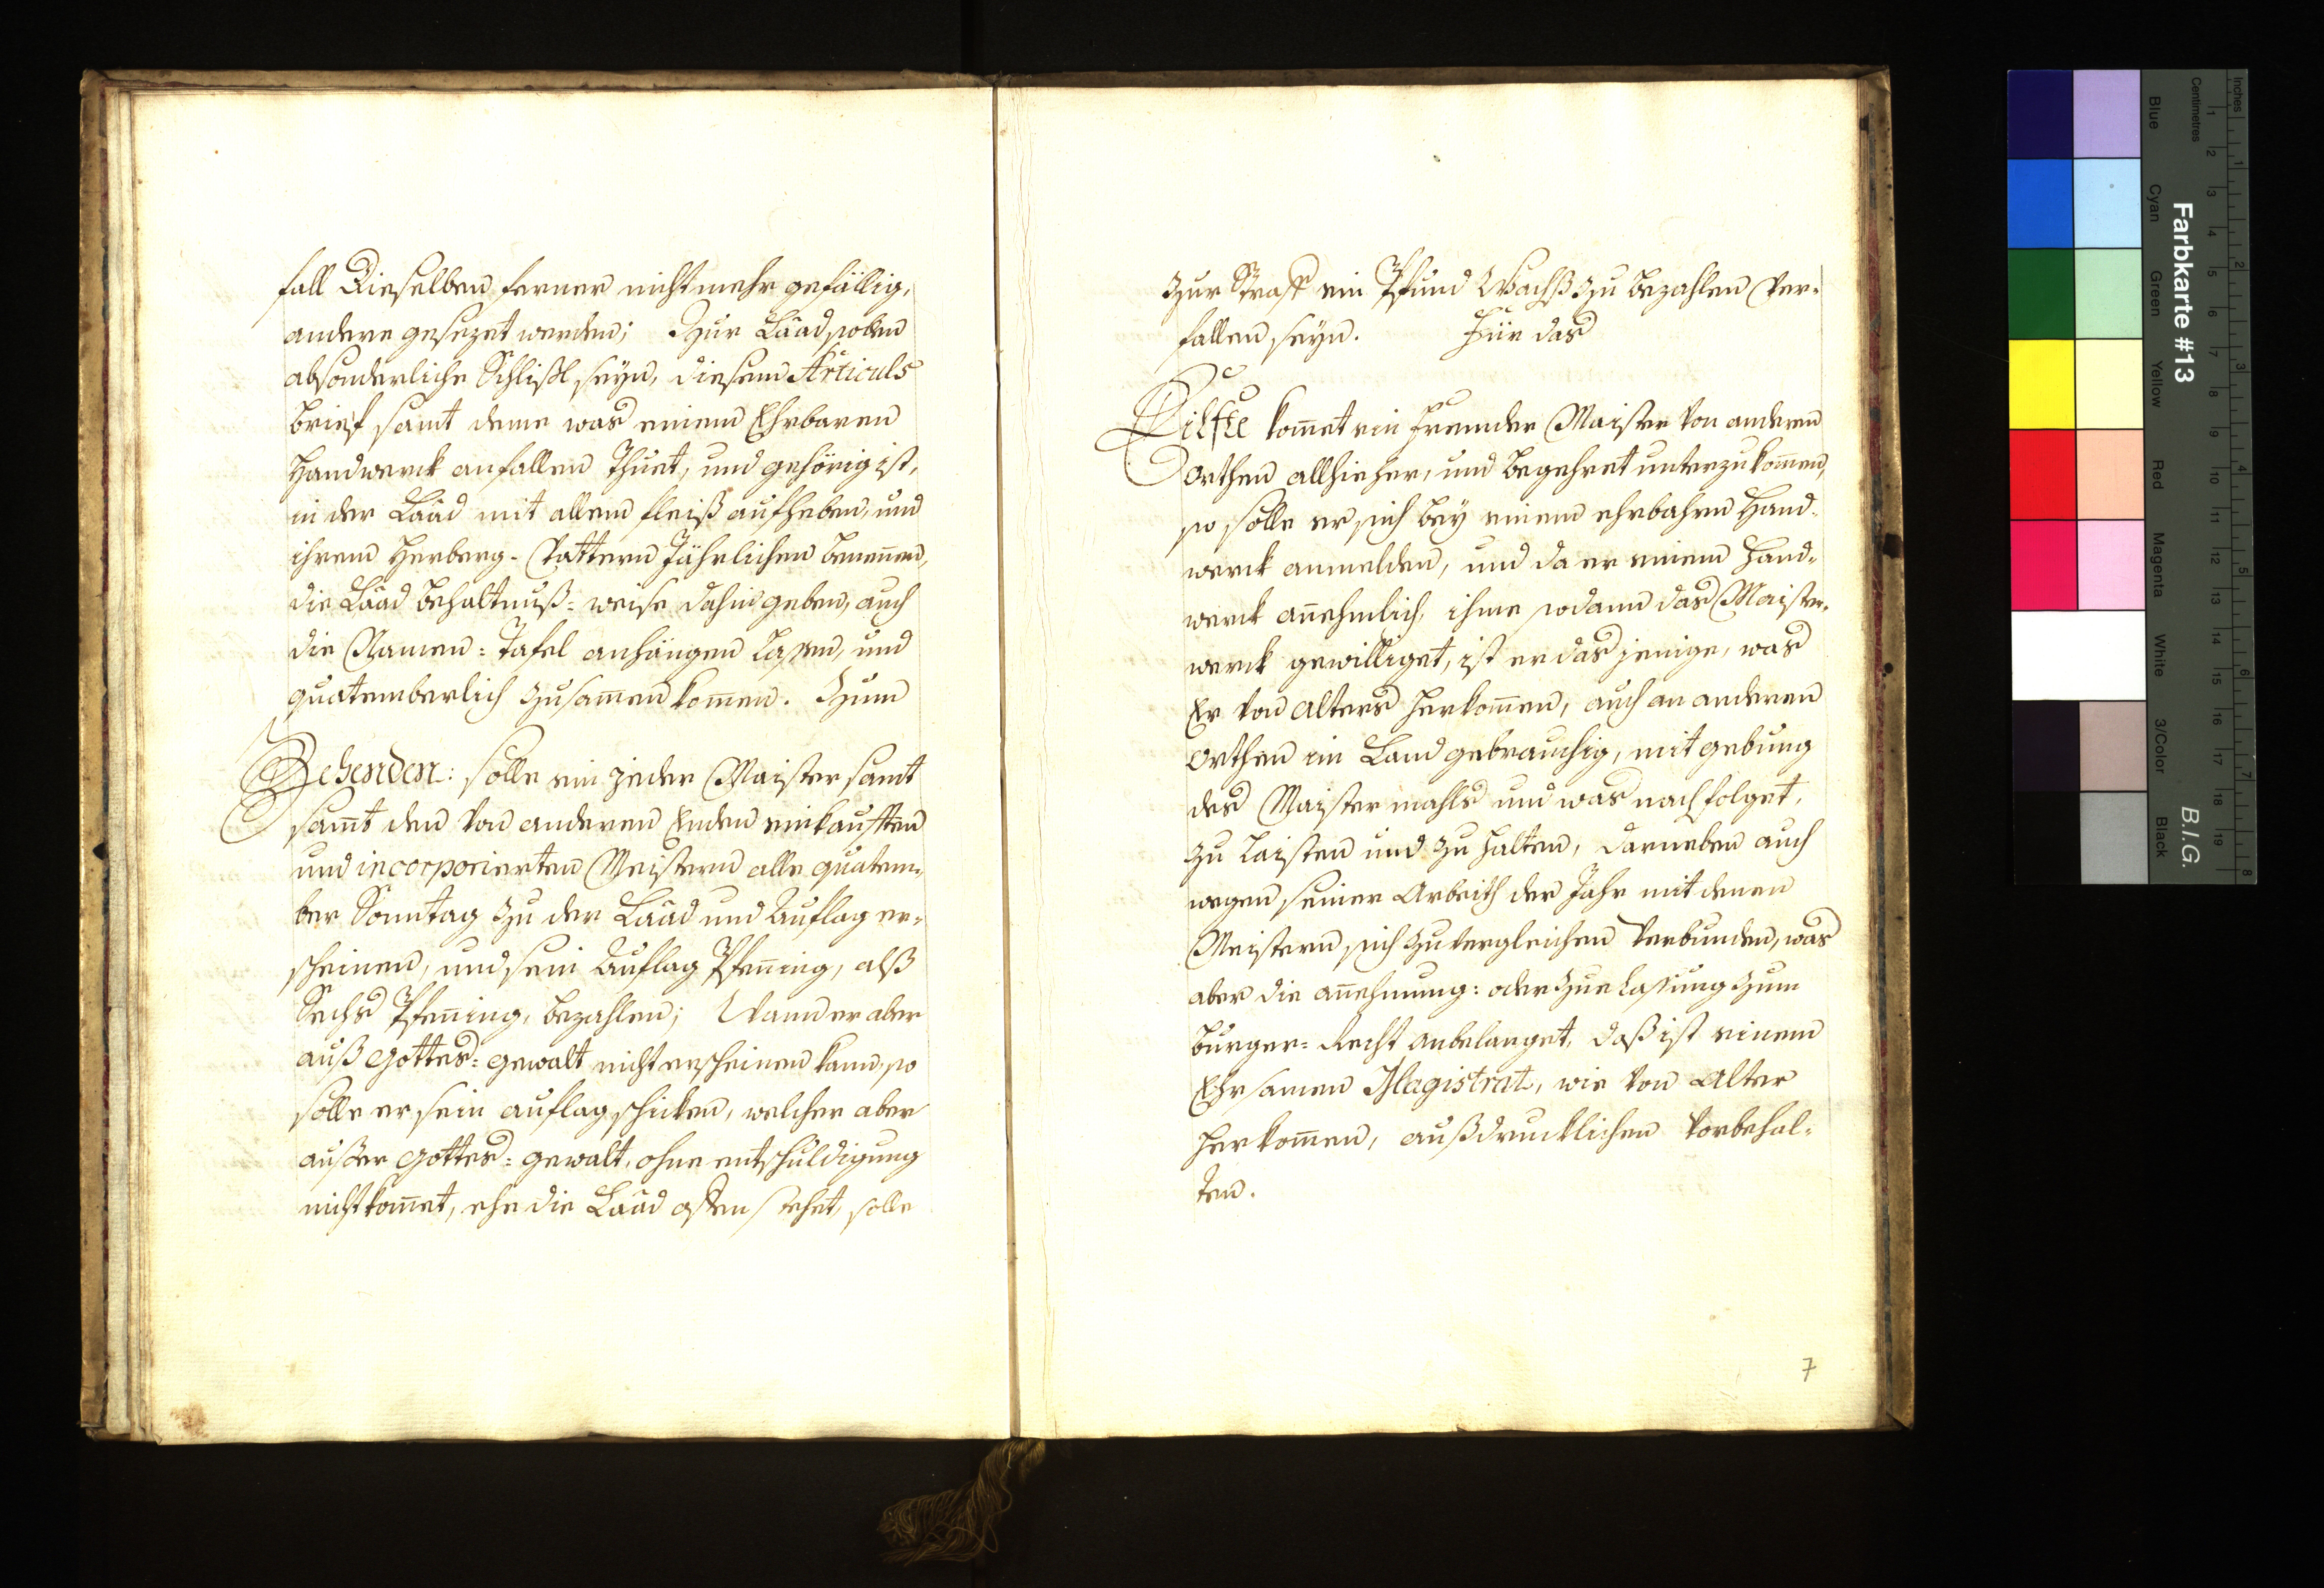 fall dieselben ferner nicht mehr gefällig,
andere gesezet werden; Zur Laad sollen
absonderliche Schlißl seyn, diesem Articuls
brieff samt deme was einem Ehrbaren
Handwerck anfallen Thuet, und gehörig ist,
in der Laad mit allem fleiß aufheben, und
ihrem Herberg-Vattern Jährlichen benennen,
die Laad behaltnuß=weise dahin geben, auch
die Namen=Tafel anhängen lassen, und
quatemberlich zusam̄en kom̄en. Zum
Zehenden: solle ein jeder Maister samt
sam̄t den von anderen Enden einkaufften
und incorporierten Meistern alle quatem=
ber Sonntag zu der Laad und Auflag er=
scheinen, und sein Auflag Pfen̄ing, alß
Sechs Pfen̄ing, bezahlen; Wann er aber
auß Gottes=gewalt nicht erscheinen kann, so
solle er sein auflag schicken, welcher aber
ausser Gottes=gewalt, ohne entschuldigung
nicht kom̄et, ehe die Laad offen stehet, solle
zur Straff ein Pfund Wachß zu bezahlen ver=
fallen seyn. Für das
Eilfte kom̄et ein Fremder Maister von anderen
Orthen allhieher, und begehret unterzukom̄en,
so solle er sich bey einem ehrbahren Hand=
werck anmelden, und da er einem Hand=
werck an̄ehmlich, ihme sodann das Maister=
werck gewilliget, ist er das jenige, was
Er von alters herkom̄en, auch an anderen
Orthen im Land gebrauchig, mit gebung
des Maistermahls und was nachfolget,
zu laisten und zu halten, darneben auch
wegen seiner Arbeith der Jahr mit denen
Meistern sich zu vergleichen verbunden, was
aber die an̄ehmung= oder zue lassung zum
burger=Recht anbelanget, daß ist einem
Ehrsamen Magistrat, wie von alter
herkom̄en, außdrucklichen vorbehal=
ten.
7
Inches
Centimetres
Farbkarte #13
B.I.G.
Blue
Cyan
Green
Yellow
Red
Magenta
White
3/Color
Black
1 2 3 4 5 6 7 8 9 10 11 12 13 14 15 16 17 18 19
1 2 3 4 5 6 7 8